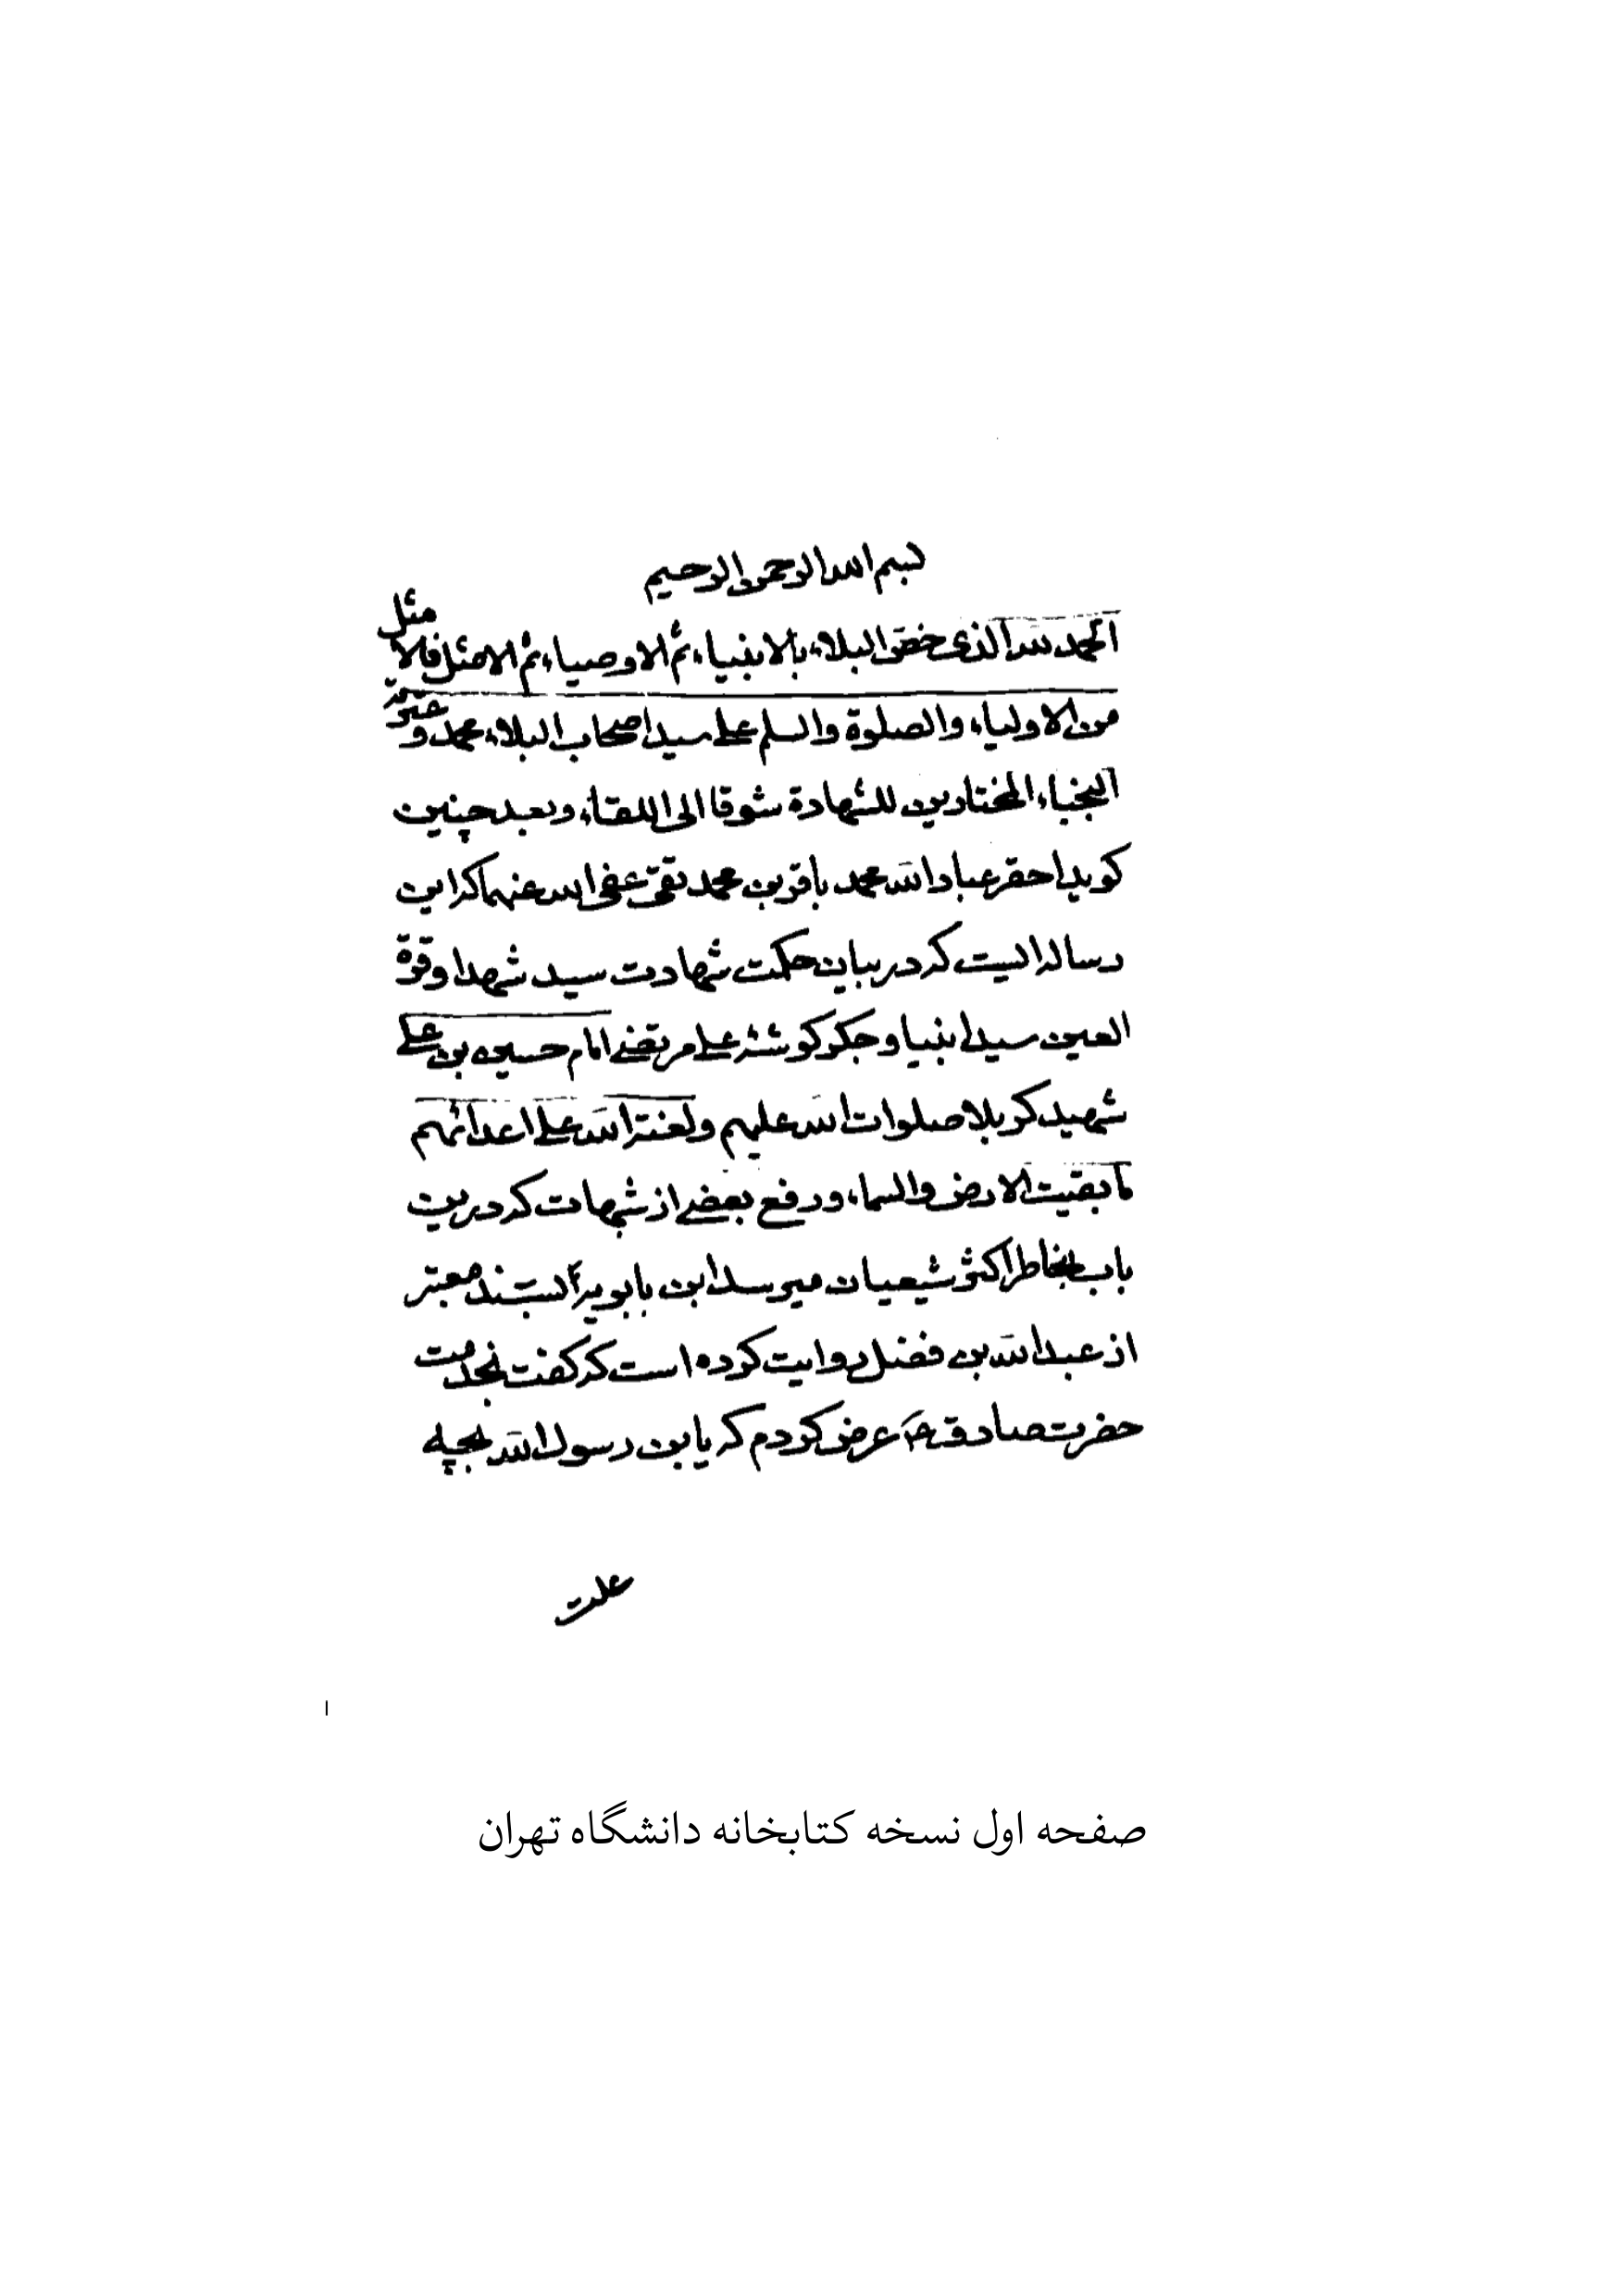 بسم الله الرحمن الرحیم
الحمد لله الذی خص البلاء بالانبیاء ثم الاوصیاء ثم الامثل فالامثل
من الاولیاء والصلوة والسلم علی سید اصحاب البلاء محمد و عترته
النجباء المختارین للشهادة شوقا الی اللقاء وبعد چنین
کوید احقر عباد الله محمد باقر بن محمد تقی عفی الله عنهما که این
رساله ایست که در بیان حکمت شهادت سید شهدا وقرة
العین سید انبیا و جکر کوشه علی مرتضی امام حسین بن علی
شهید کربلا صلوات الله علیهم ولعنة الله علی اعدائهم
ما بقیت الارض والسماء ودفع بعضی از شبهات که درین
باب بخاطر اکثر شیعیان میرسد ابن بابویه بسند معتبر
از عبدالله بن فضل روایت کرده است که کفت بخدمت
حضرت صادق عرض کردم که یابن رسول الله بچه
علت
صفحه اول نسخه کتابخانه دانشگاه تهران